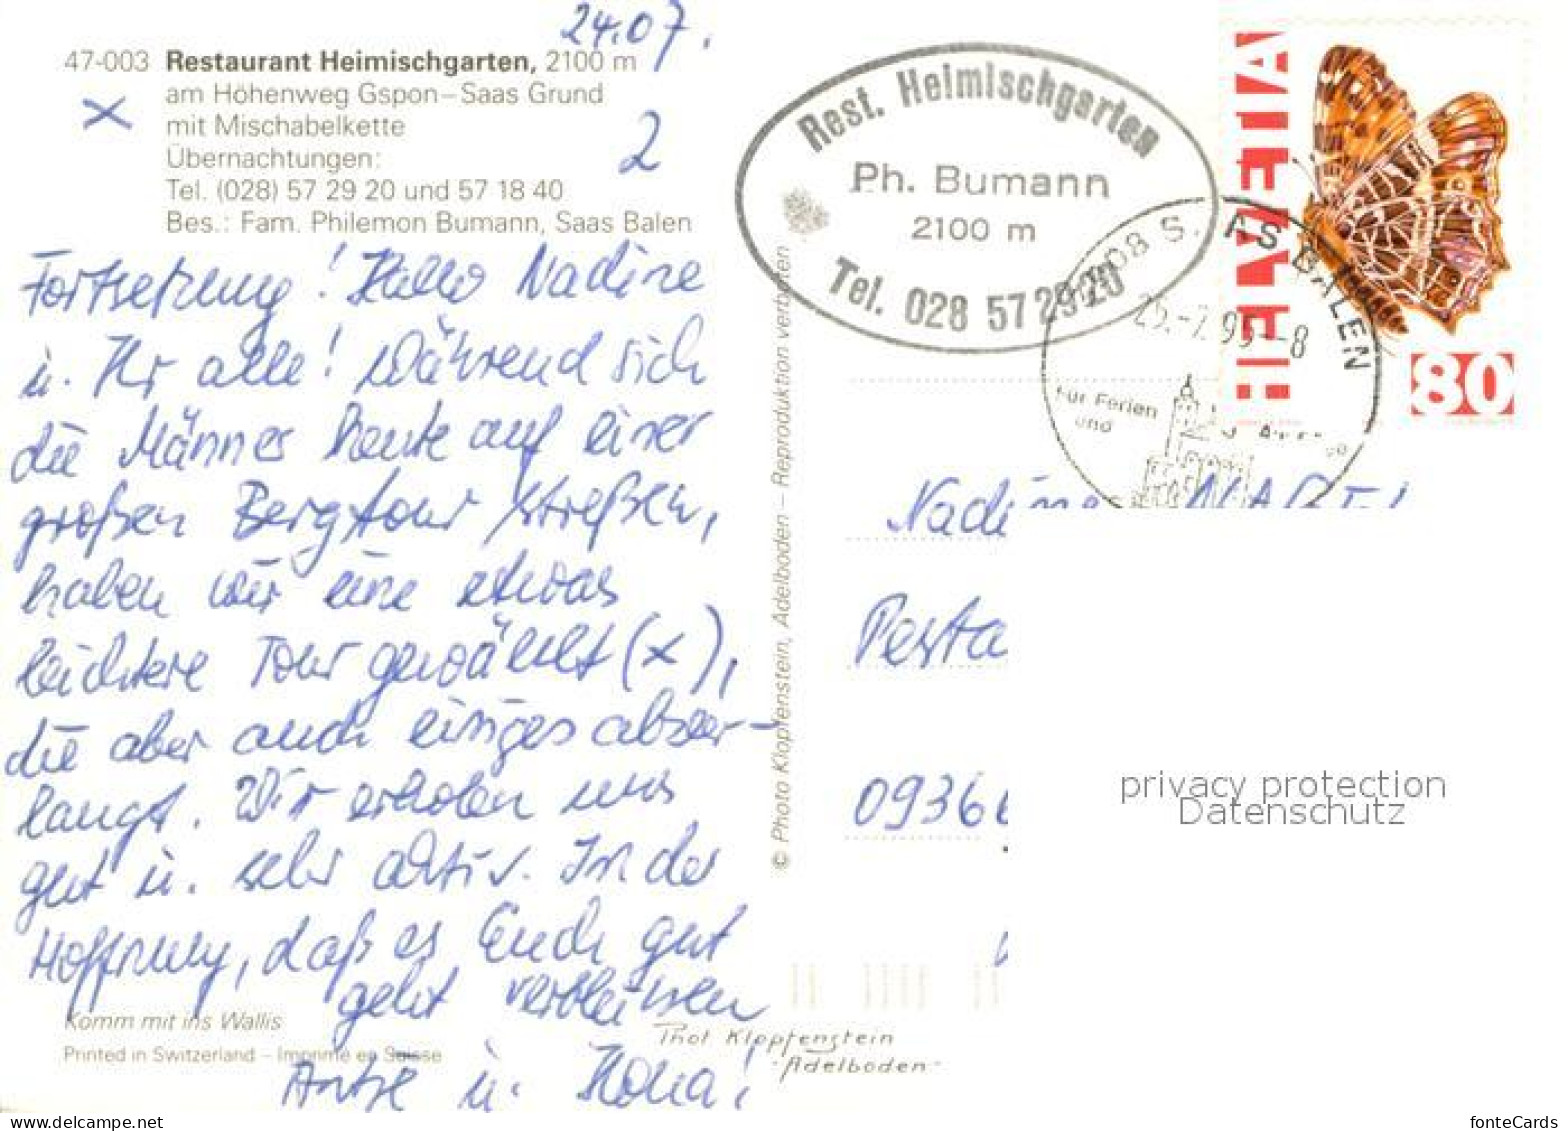 24.07.
47-003 Restaurant Heimischgarten, 2100 m
x am Höhenweg Gspon–Saas Grund
mit Mischabelkette
2
Übernachtungen:
Tel. (028) 57 29 20 und 57 18 40
Bes.: Fam. Philemon Bumann, Saas Balen
Fortsetzung! Hallo Nadine
u. Ihr alle! Während sich
die Männer heute auf einer
großen Bergtour
haben wir eine etwas
leichtere Tour gewählt (x),
die aber auch einiges abver-
langt. Wir erholen uns
gut u. sehr aktiv. In der
Hoffnung, daß es Euch gut
geht verbleiben
Antje u. Ilona!
Komm mit ins Wallis
Printed in Switzerland – Imprimé en Suisse
© Photo Klopfenstein, Adelboden – Reproduktion verboten
Phot Klopfenstein
Adelboden
Rest. Heimischgarten
Ph. Bumann
2100 m
Tel. 028 57 29 20
BALEN
für Ferien
und
HELVETIA
80
Nadine
Pesta
0936
privacy protection
Datenschutz
www.delcampe.net
fonteCards